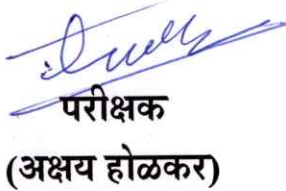 परीक्षक
(अक्षय होळकर)